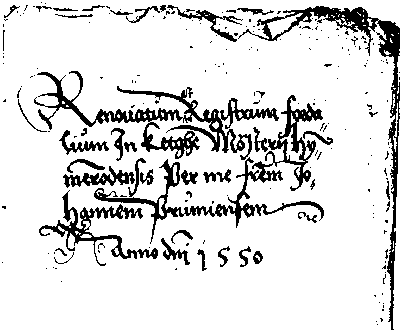 Renouatum est Registrum feoda
lium In Letghe Mo͞sterij hy͞
merodensis Per me fre͞m Jo
hannem prumiensem
Anno dn͞i 1550